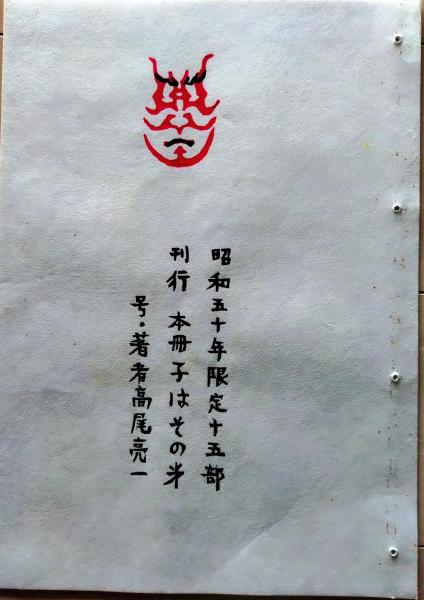 昭和五十年限定十五部
刊行 本冊子はその㐧
号・著者高尾亮一